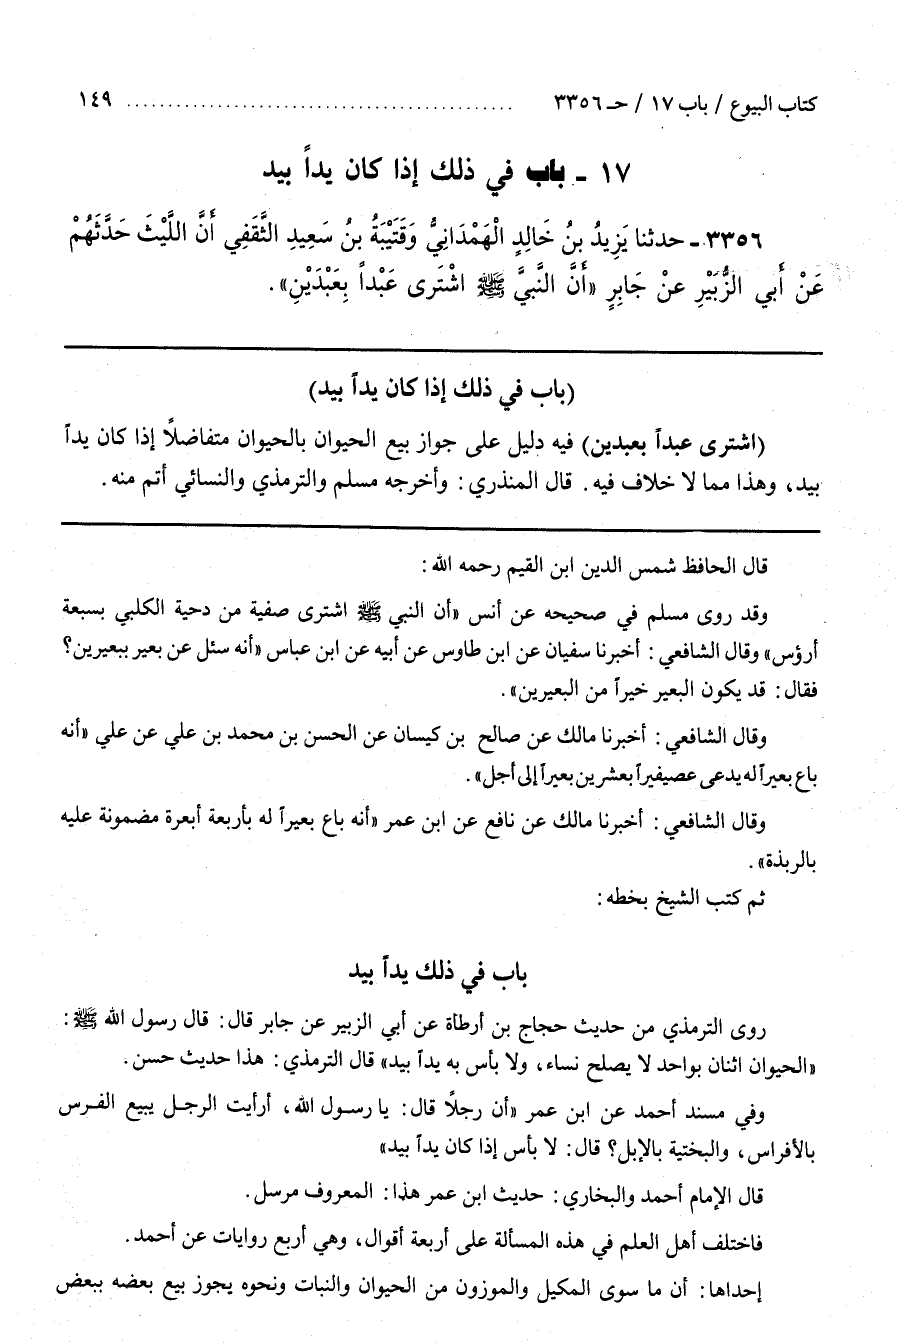 كتاب البيوع / باب ١٧ / حـ ٣٣٥٦ ................................................ ١٤٩
١٧ ـ باب في ذلك إذا كان يداً بيد
٣٣٥٦ـ حدثنا يَزِيدُ بنُ خَالِدٍ الْهَمْدَانِيُّ وَقَتَيْبَةُ بنُ سَعِيدِ الثَّقَفِي أَنَّ اللَّيْثَ حَدَّثَهُمْ
عَنْ أَبي الزُّبَيْرِ عنْ جَابِرٍ «أَنَّ النَّبيَّ ﷺ اشْتَرى عَبْداً بِعَبْدَيْنِ».
(باب في ذلك إذا كان يداً بيد)
(اشترى عبداً بعبدين) فيه دليل على جواز بيع الحيوان بالحيوان متفاضلاً إذا كان يداً
بيد، وهذا مما لا خلاف فيه. قال المنذري: وأخرجه مسلم والترمذي والنسائي أتم منه.
قال الحافظ شمس الدين ابن القيم رحمه الله:
وقد روى مسلم في صحيحه عن أنس «أن النبي ﷺ اشترى صفية من دحية الكلبي بسبعة
أرؤس» وقال الشافعي: أخبرنا سفيان عن ابن طاوس عن أبيه عن ابن عباس «أنه سئل عن بعير ببعيرين؟
فقال: قد يكون البعير خيراً من البعيرين».
وقال الشافعي: أخبرنا مالك عن صالح بن كيسان عن الحسن بن محمد بن علي عن علي «أنه
باع بعيراً له يدعى عصيفيراً بعشرين بعيراً إلى أجل».
وقال الشافعي: أخبرنا مالك عن نافع عن ابن عمر «أنه باع بعيراً له بأربعة أبعرة مضمونة عليه
بالربذة».
ثم كتب الشيخ بخطه:
باب في ذلك يداً بيد
روى الترمذي من حديث حجاج بن أرطأة عن أبي الزبير عن جابر قال: قال رسول الله ﷺ:
«الحيوان اثنان بواحد لا يصلح نساء، ولا بأس به يداً بيد» قال الترمذي: هذا حديث حسن.
وفي مسند أحمد عن ابن عمر «أن رجلاً قال: يا رسول الله، أرأيت الرجل يبيع الفرس
بالأفراس، والبختية بالإبل؟ قال: لا بأس إذا كان يداً بيد»
قال الإمام أحمد والبخاري: حديث ابن عمر هذا: المعروف مرسل.
فاختلف أهل العلم في هذه المسألة على أربعة أقوال، وهي أربع روايات عن أحمد.
إحداها: أن ما سوى المكيل والموزون من الحيوان والنبات ونحوه يجوز بيع بعضه ببعض